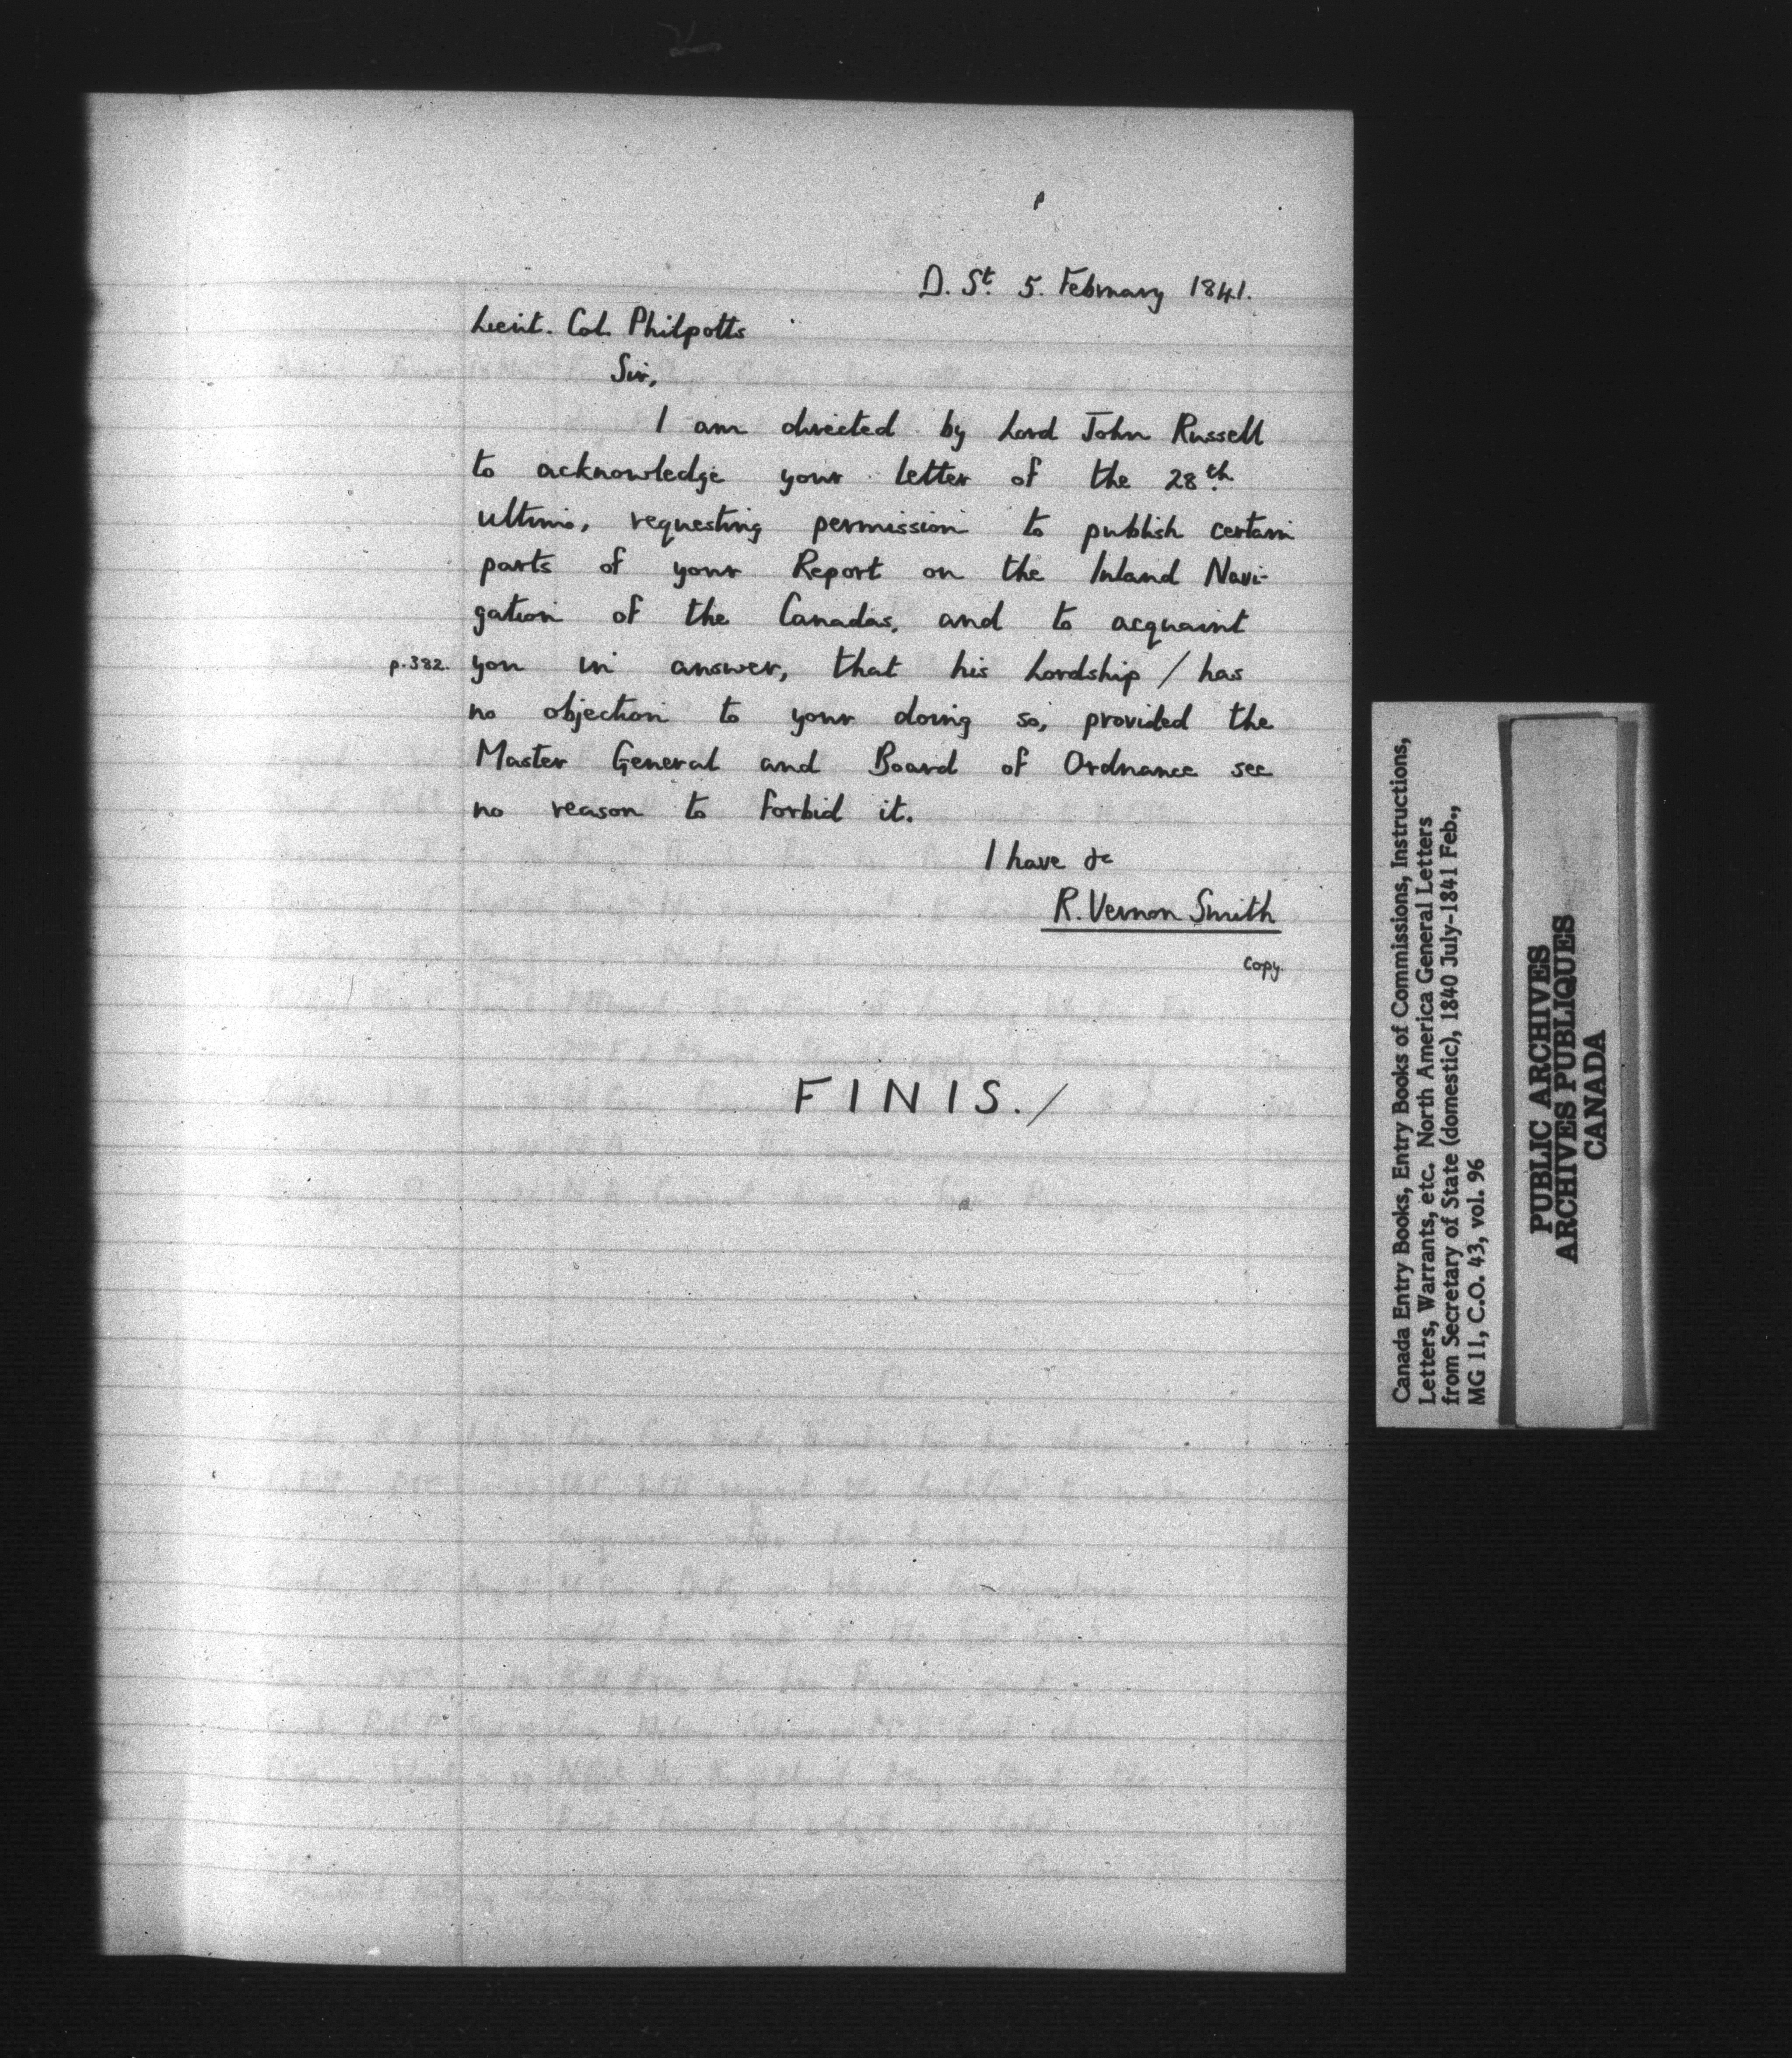 D. St. 5. February 1841.
Lieut. Col. Philpotts
Sir,
I am directed by Lord John Russell
to acknowledge your letter of the 28th.
ultimo, requesting permission to publish certain
parts of your Report on the Inland Navi-
gation of the Canadas, and to acquaint
p.382. you in answer, that his Lordship / has
no objection to your doing so, provided the
Master General and Board of Ordnance see
no reason to forbid it.
I have &c
R. Vernon Smith
Copy.
FINIS./
Canada Entry Books, Entry Books of Commissions, Instructions,
Letters, Warrants, etc. North America General Letters
from Secretary of State (domestic), 1840 July-1841 Feb.,
MG 11, C.O. 43, vol. 96
PUBLIC ARCHIVES
ARCHIVES PUBLIQUES
CANADA